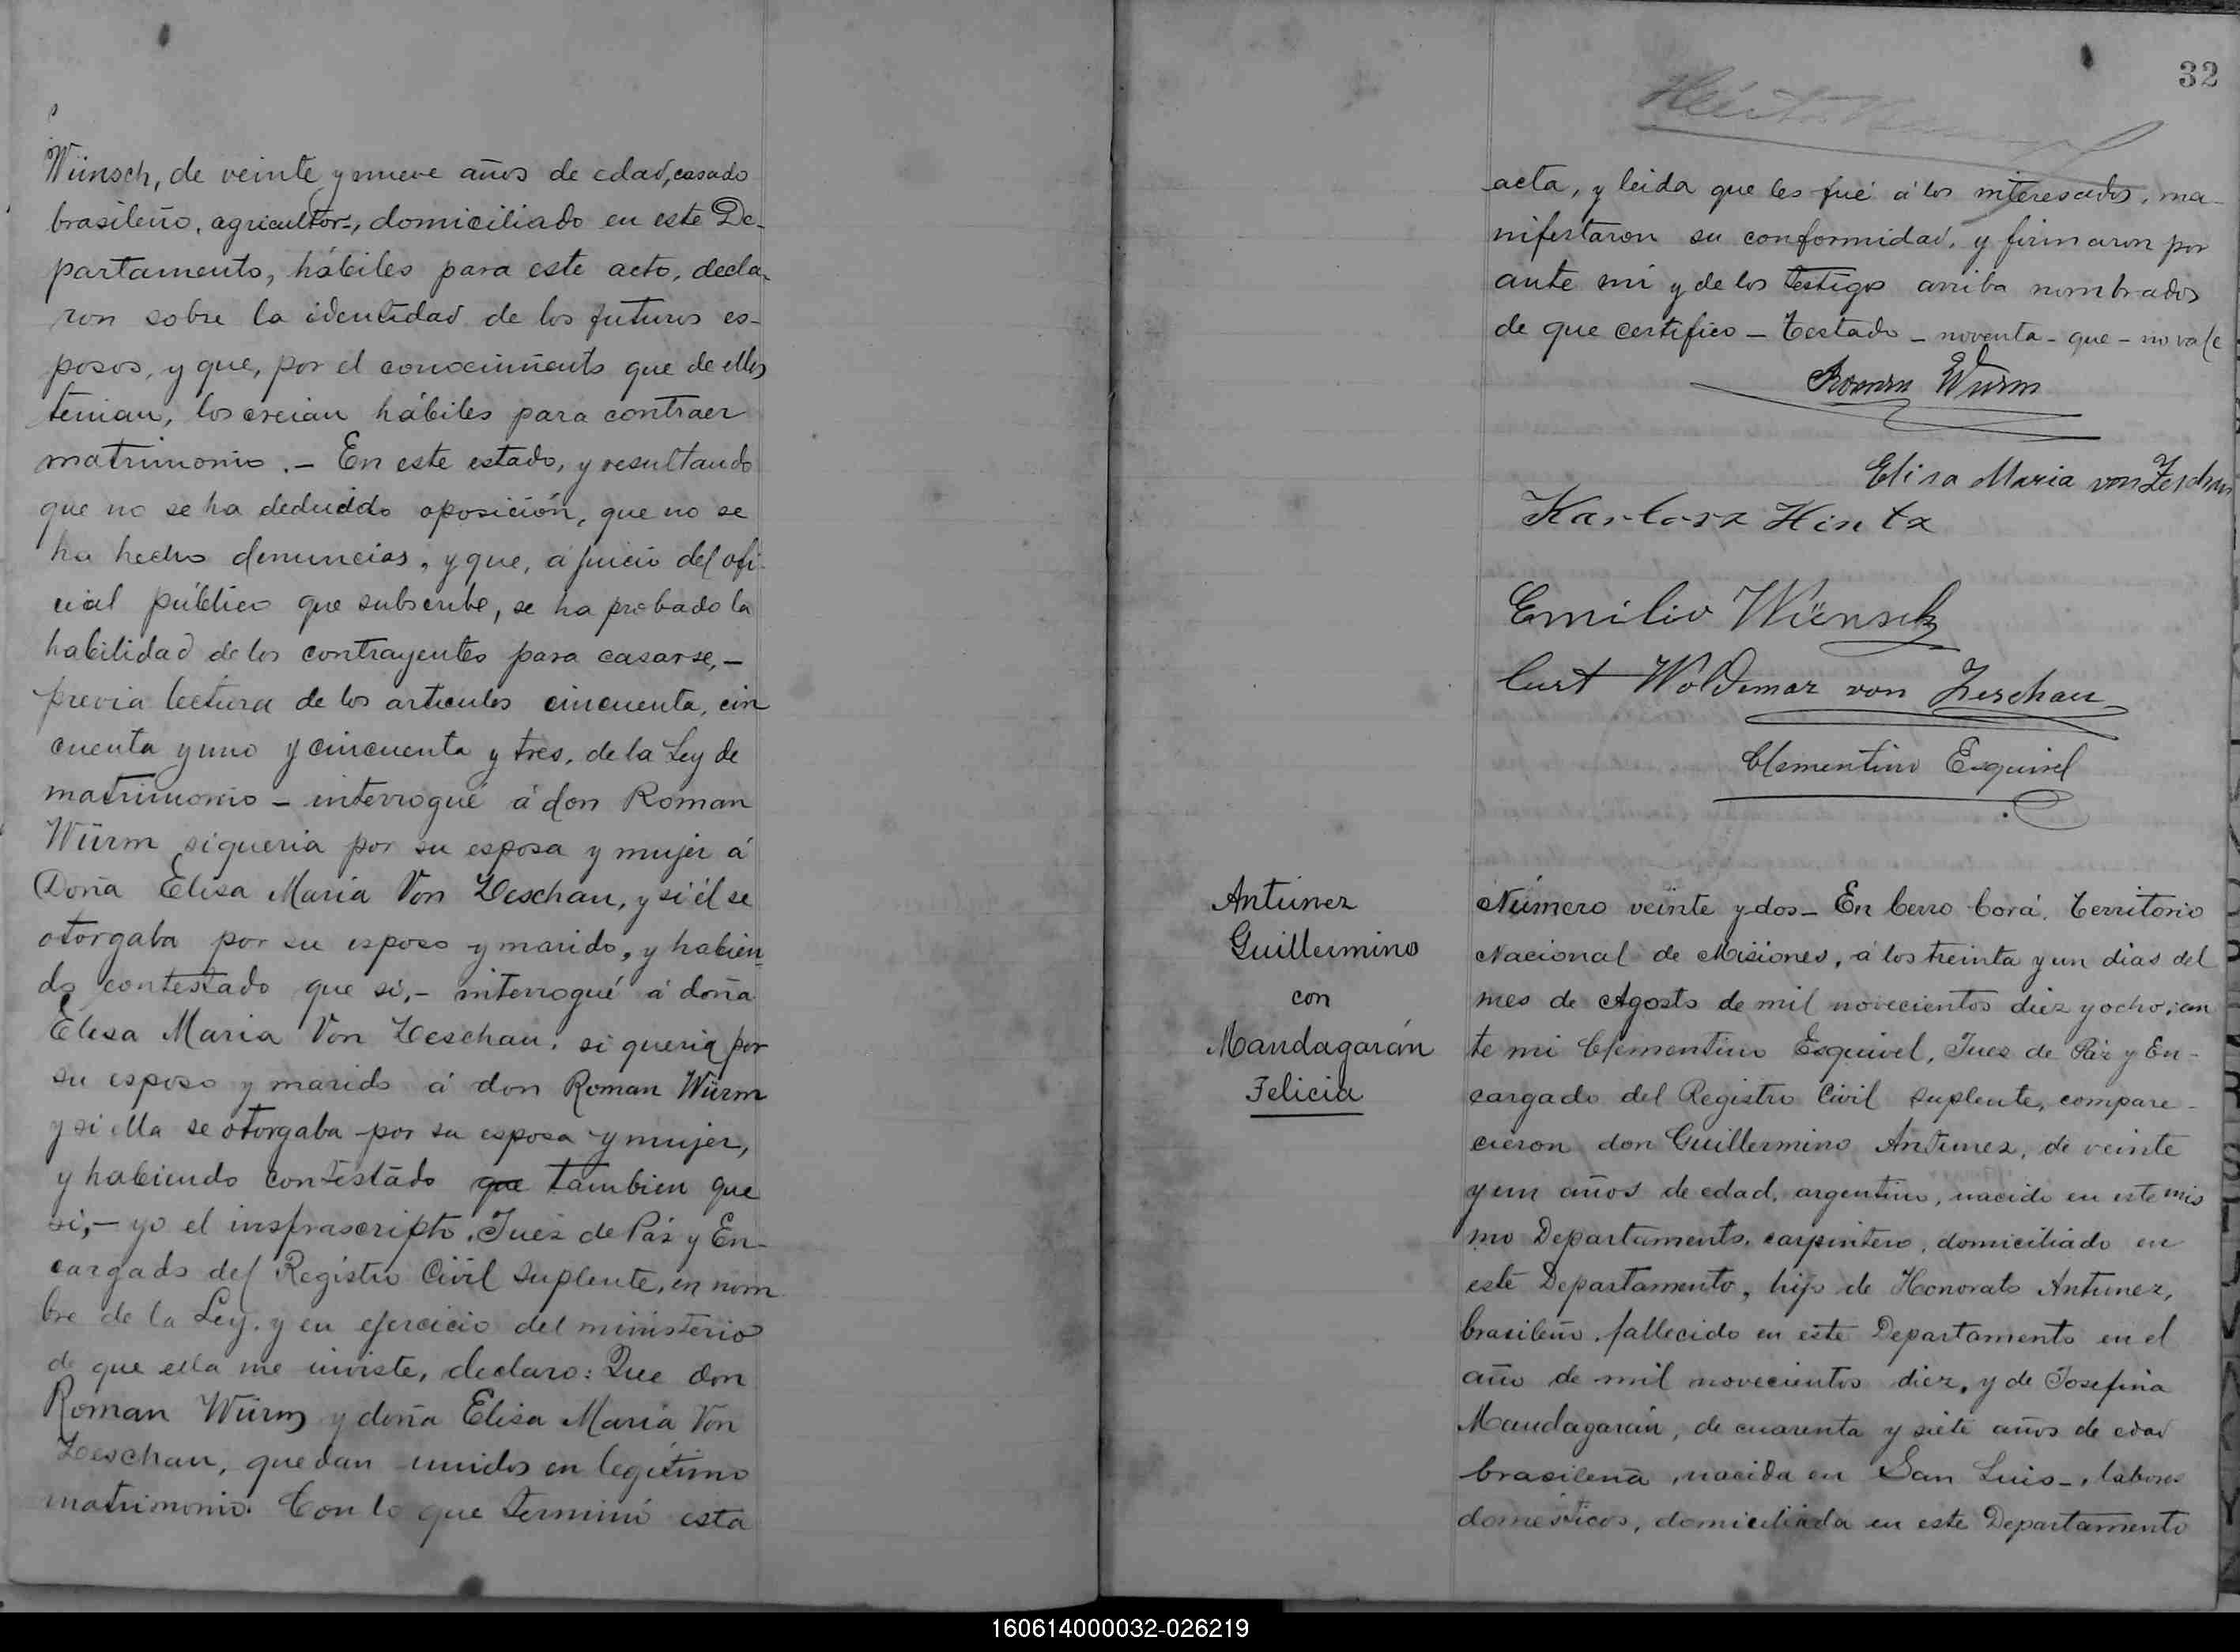 Wünsch, de veinte y nueve años de edad, casado
brasileño, agricultor-, domiciliado en este De-
partamento, hábiles para este acto, decla-
ron sobre la identidad de los futuros es-
posos, y que, por el conocimiento que de ellos
tenian, los creian hábiles para contraer
matrimonio.- En este estado, y resultando
que no se ha deducido oposición, que no se
ha hecho denuncias, y que, a juicio del ofi-
cial público que subscribe, se ha probado la
habilidad de los contrayentes para casarse,-
previa lectura de los articulos cincuenta, cin
cuenta y uno y cincuenta y tres, de la Ley de
matrimonio - interrogué á don Roman
Würm si queria por su esposa y mujer á
Doña Elisa Maria Von Zeschau, y si él se
otorgaba por su esposo y marido, y habien-
do contestado que si,- interrogué á doña
Elisa Maria Von Zeschau, si queria por
su esposo y marido á don Roman Würm
y si ella se otorgaba por su esposa y mujer,
y habiendo contestado que tambien que
si,- yo el insfrascripto, Juez de Páz y En-
cargado del Registro Civil suplente, en nom
bre de la Ley, y en ejercicio del ministerio
de que ella me inviste, declaro: Que don
Roman Würm y doña Elisa Maria Von
Zeschau, quedan unidos en legitimo
matrimonio. Con lo que terminó esta
32
acta, y leida que les fué á los interesados, ma-
nifestaron su conformidad, y firmaron por
ante mi y de los testigos arriba nombrados
de que certifico - Testado - noventa - que - no vale
Roman Wurm
Elisa Maria von Zeschau
Hintz
Emilio Wünsch
Curt Woldemar von Zeschau
Clementino Esquivel
Antunez
Guillermino
con
Mandagarán
Felicia
Número veinte y dos - En Cerro Corá, Territorio
Nacional de Misiones, á los treinta y un dias del
mes de Agosto de mil novecientos diez y ocho, an
te mi Clementino Esquivel, Juez de Páz y En-
cargado del Registro Civil suplente, compare-
cieron don Guillermino Antunez, de veinte
y un años de edad, argentino, nacido en este mis
mo Departamento, carpintero, domiciliado en
este Departamento, hijo de Honorato Antunez,
brasileño, fallecido en este Departamento en el
año de mil novecientos diez, y de Josefina
Mandagarán, de cuarenta y siete años de edad
brasilena, nacida en San Luis-, labores
domésticos, domiciliada en este Departamento
160614000032-026219